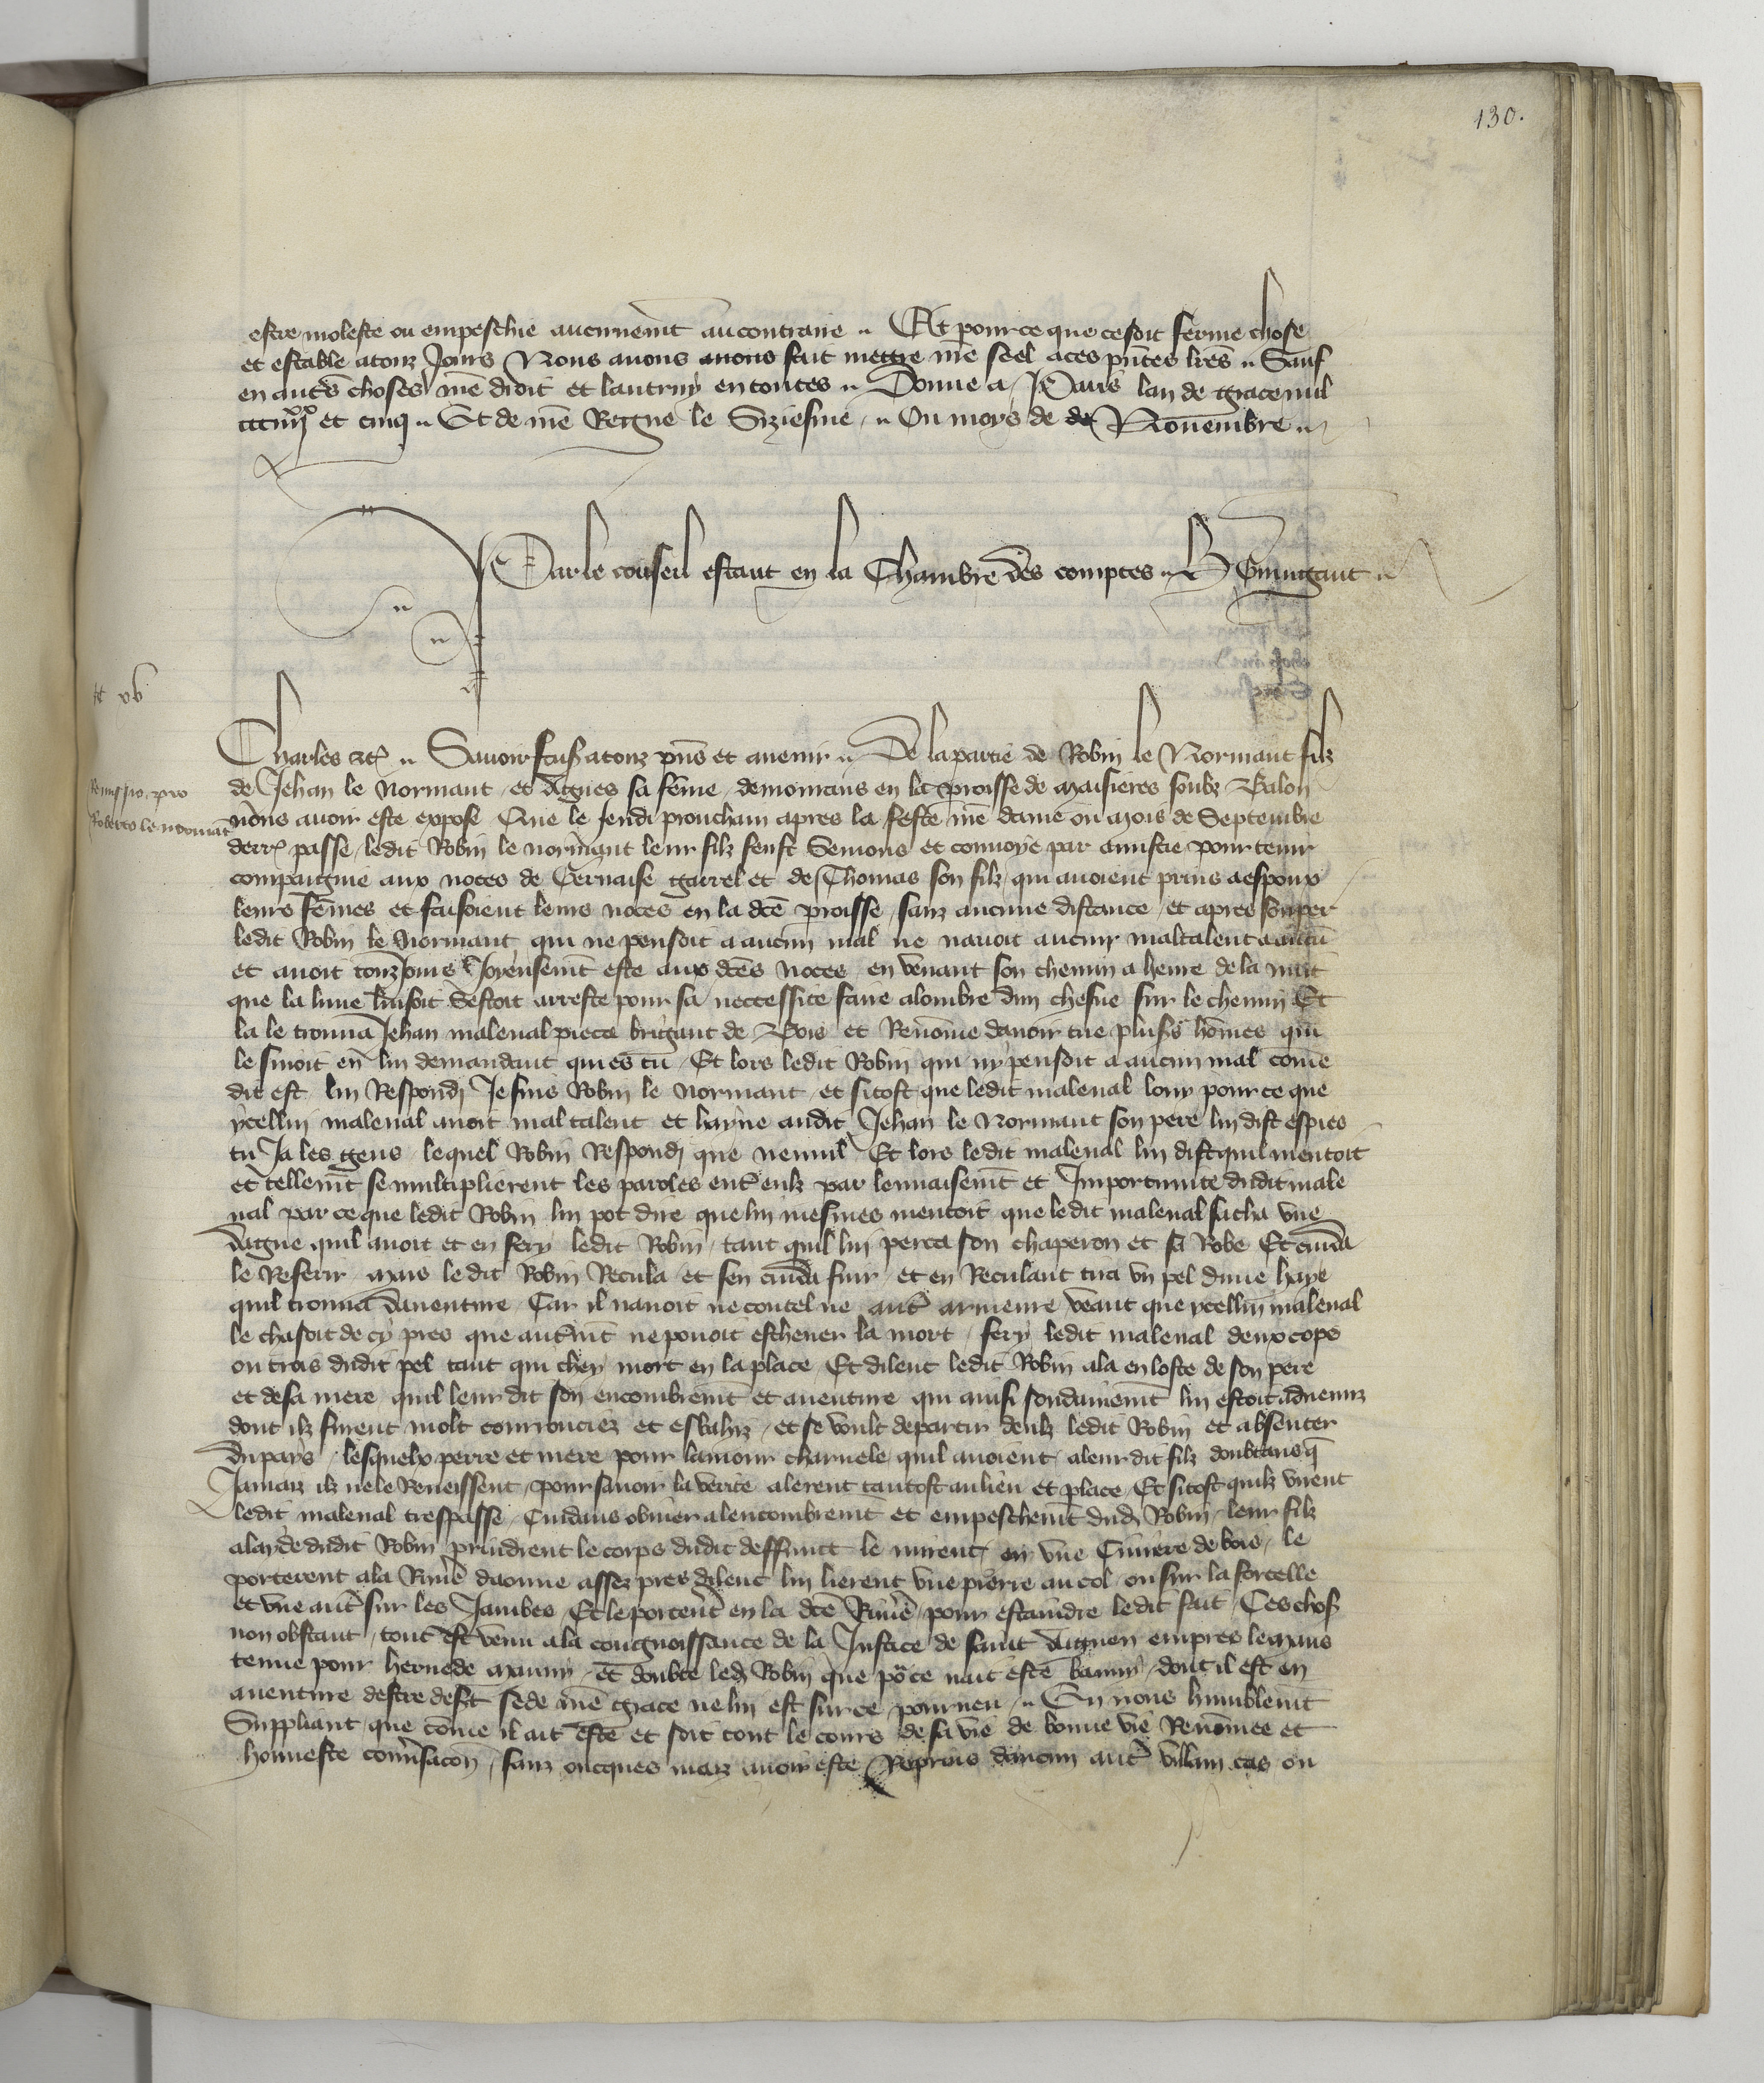 130.
estre moleste ou empeschie aucunemt au contraire Et pour ce que ce soit ferme chose
et estable a touz Jours Nous avons avons fait mettre nre seel a ces pntes lres Sauf
en autres choses nre droit et lautruy en toutes Donne a Paris lan de grace mil
et cinq Et de nre Regne le Siziesme Ou moys de de Novembre
Par le conseil estant en la Chambre des comptes
Charles etc Savoir faisons a touz pns et avenir De la partie de Robin le Normant filz
de Jehan le Normant et Agnes sa feme demorans en la proisse de Maisieres soubz Balon
Remissio pro
Roberto le normant
nous avoir este expose Que le Jeudi prouchain apres la feste nre dame ou mois de Septembre
derr passe ledit Robin le normant leur filz feust Semons et convoye par amistie pour tenir
compaignie aux noces de Gervaise garrel et de Thomas son filz qui avoient prins a espoux
leurs femes et faisoient leurs noces en la dce proisse sanz aucune distance et apres souper
ledit Robin le Normant qui ne pensoit a aucun mal ne navoit aucun maltalent a
et avoit touz Jours Joyeusemt este aux dces noces en venant son chemin a heure de la nuit
que la lune luisoit Sestoit arreste pour sa neccessite faire a lombre dun chesne sur le chemin Et
la le trouva Jehan maleval pieca brigant de Bois et Renome davoir tue plusrs homes qui
le suioit en lui demandant qui es tu Et lors ledit Robin qui ny pensoit a aucun mal come
dit est lui Respondi Je suis Robin le Normant et sitost que ledit maleval louy pour ce que
ycellui maleval avoit mal talent et hayne audit Jehan le Normant son pere lui dist espies
tu Ja les gens lequel Robin Respondi que nennil Et lors ledit maleval lui dist quil mentoit
et tellemt se multiplierent les paroles entre eulz par lenvaisemt et Importunite dudit male
val par ce que ledit Robin lui pot dire que lui mesmes mentoit que ledit maleval sacha une
dague quil avoit et en fery ledit Robin tant quil lui perca son chaperon et sa Robe Et cuida
le Referir Mais ledit Robin Recula et sen cuida fuir et en Reculant tira un pel dune haye
quil trouva daventure Car il navoit ne coutel ne autre armeure veant que ycellui maleval
le chasoit de cy pres que autremt ne povoit eschever la mort fery ledit maleval deux cops
ou trois dudit pel tant qui chey mort en la place Et dilenc ledit Robin ala en loste de son pere
et de sa mere quil leur dit son encombremt et aventure qui ainsi sondainemt lui estoit advenuz
dont ilz furent molt courrouciez et esbahiz et se voult departir deulz ledit Robin et absenter
du pays lesquelx perre et mere pour lamour charnele quil avoient a leur dit filz doubtans q
Jamaiz ilz ne le Reveissent pour savoir la verite alerent tantost au lieu et place Et sitost quilz virent
ledit maleval trespasse Cuidans obvier a lencombremt et empeschemt dud Robin leur filz
a layde dudit Robin prindrent le corps dudit deffunct le mirent en une Civiere de bois le
porterent a la Riviere dorne assez pres dilenc lui lierent une pierre au col ou sur la forcelle
et une autre sur les Jambes Et le porterent en la dce Riviere pour estaindre ledit fait Ces chos
non obstant tout est venu a la congnoissance de la Justice de saint Aignen empres le Mans
tenue pour herve de Mauny et doubte led Robin que po ce nait este banny dont il est en
aventure destre desert se de nre grace ne lui est sur ce pourveu En nous humblemt
Suppliant que come il ait este et soit tout le cours de sa vie de bonne vie Renomee et
honneste conversacon sanz oncques maiz avoir este Repris daucun autre villain cas ou